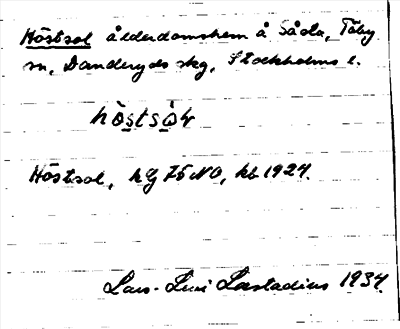 Höstsol ålderdomshem å Såsta, Täby
sn, Danderyds skg, Stockholms l.
höstsòɫ
Höstsol, hg 75 NO, kb 1924.
Lars-Levi Læstadius 1934.